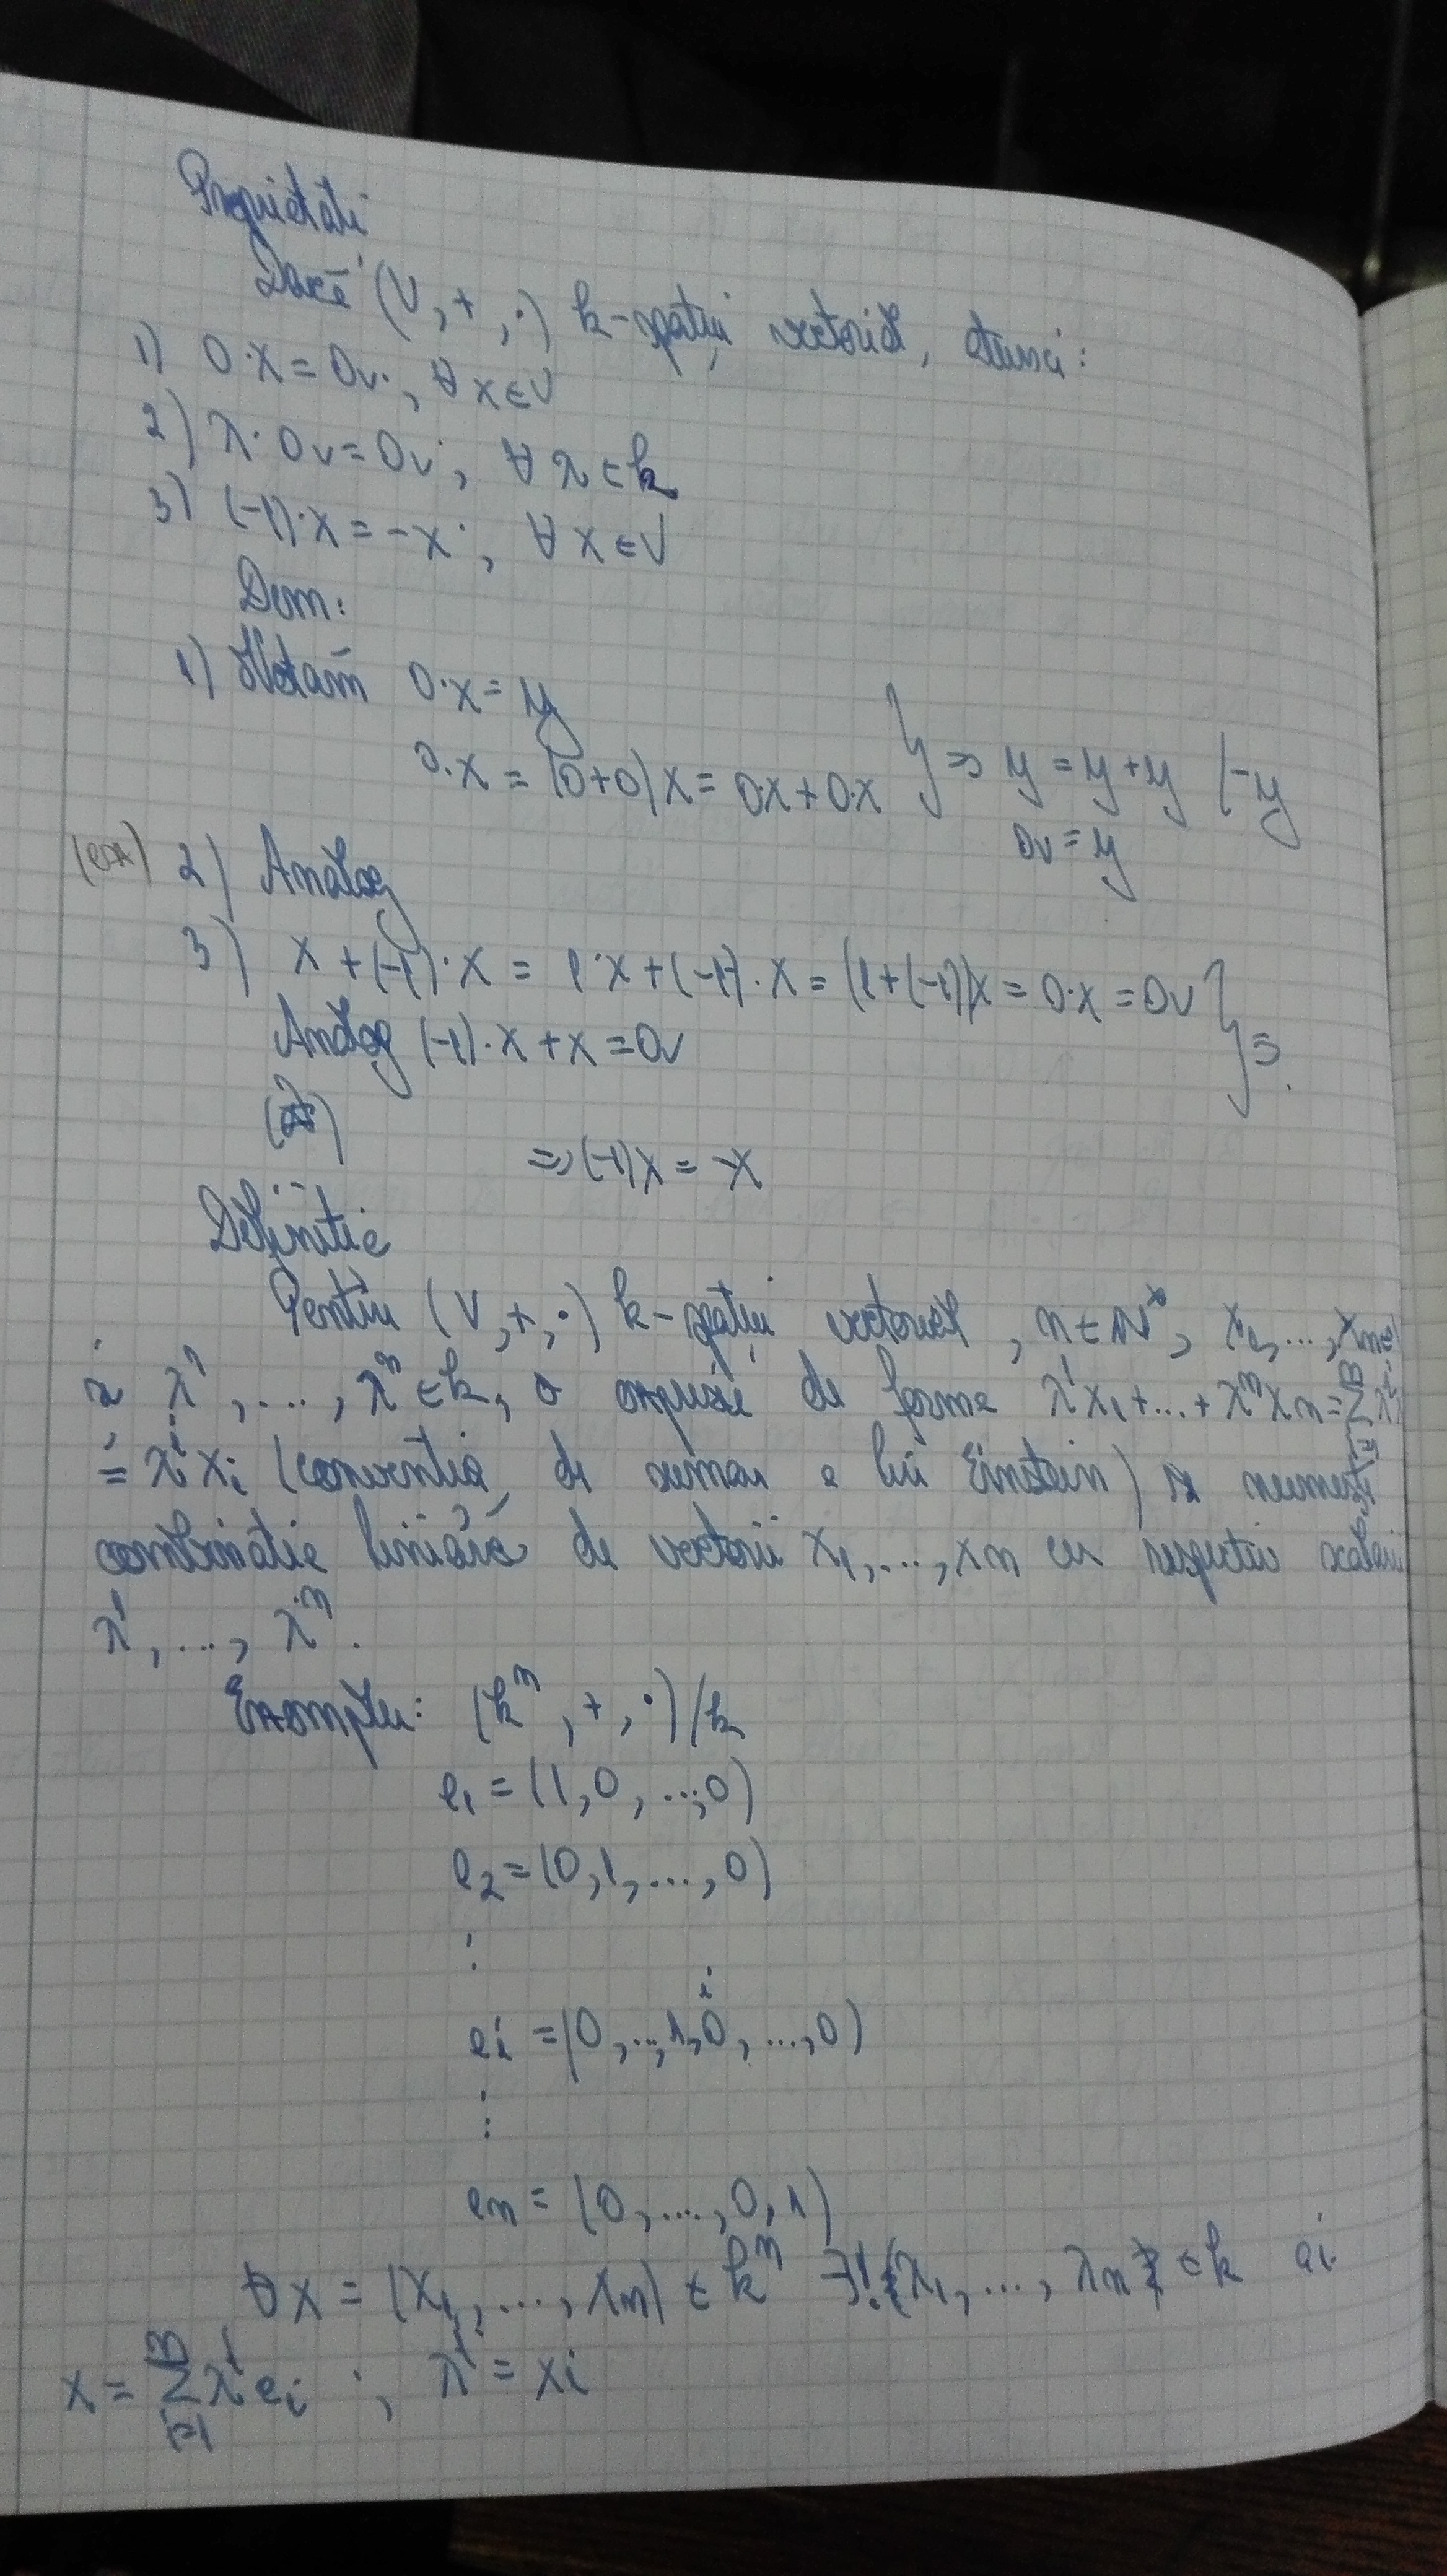 Proprietăți
Dacă (V, +, ·) k-spațiu vectorial, atunci:
1) 0·x = 0v, ∀ x ∈ V
2) λ·0v = 0v, ∀ λ ∈ k
3) (-1)·x = -x, ∀ x ∈ V
Dem:
1) Notăm 0·x = y
0·x = (0+0)x = 0x + 0·x } ⇒ y = y + y |-y
0v = y
(ex) 2) Analog
3) x + (-1)·x = 1·x + (-1)·x = (1+(-1))x = 0·x = 0v } ⇒
Analog (-1)·x + x = 0v
⇒ (-1)x = -x
Definiție
Pentru (V, +, ·) k-spațiu vectorial, n ∈ N*, x1, ..., xn ∈
și λ¹, ..., λⁿ ∈ k, o expresie de forma λ¹x1 + ... + λⁿxn = Σ λⁱ
= λⁱxi (convenția de sumare a lui Einstein) se numește
combinație liniară de vectorii x1, ..., xn cu respectiv scalarii
λ¹, ..., λⁿ.
Exemplu: (kⁿ, +, ·)/k
e1 = (1, 0, ..., 0)
e2 = (0, 1, ..., 0)
⋮
i
ei = (0, .., 1, 0, ..., 0)
⋮
en = (0, ..., 0, 1)
∀ x = (x1, ..., xn) ∈ kⁿ ∃! λ1, ..., λn ∈ k ai
x = Σⁿᵢ₌₁ λⁱei ; λⁱ = xi